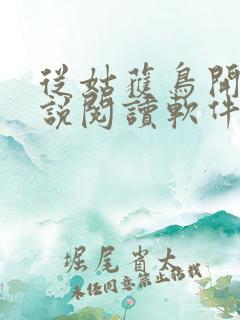 從姑蔟鳥開
說閱讀軟件
堀尾省太
未经同意禁止搭我